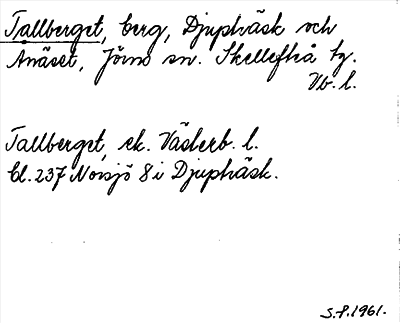 Tallberget, berg, Djupträsk och
Anäset, Jörns sn. Skellefteå tg.
Vb. l.
Tallberget, ek. Västerb. l.
Bl. 237 Norsjö 8 i Djupträsk.
S.P. 1961.